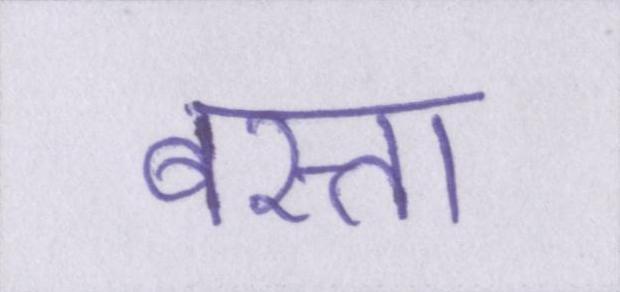 बस्ता